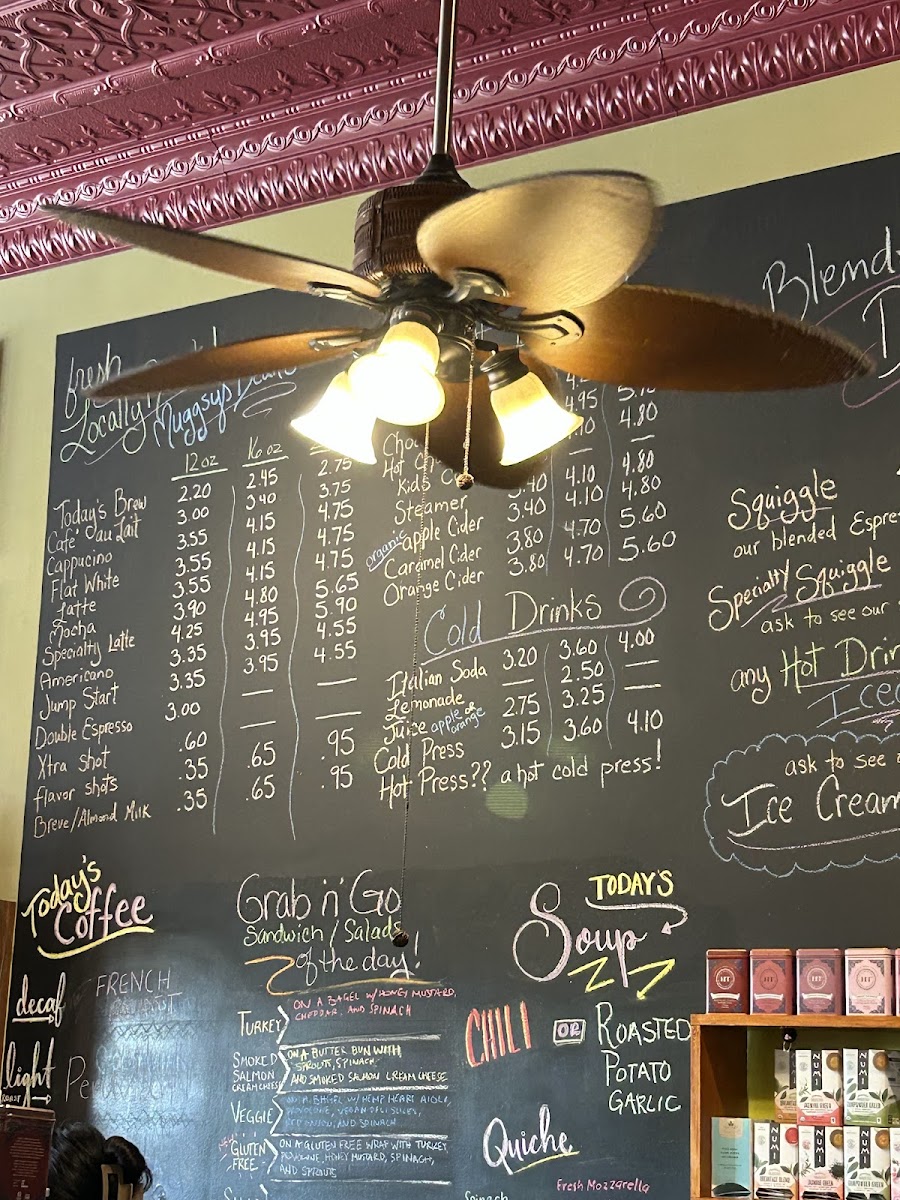 fresh
Locally
Muggsys Beans
12 oz 16 oz
Today's Brew 2.20 2.45 2.75
Café au Lait 3.00 3.40 3.75
Cappucino 3.55 4.15 4.75
Flat White 3.55 4.15 4.75
Latte 3.55 4.15 4.75
Mocha 3.90 4.80 5.65
Specialty Latte 4.25 4.95 5.90
Americano 3.35 3.95 4.55
Jump Start 3.35 3.95 4.55
Double Espresso 3.00 — —
Xtra shot .60 — —
flavor shots .35 .65 .95
Breve/Almond Milk .35 .65 .95
4.95
4.80
Hot
Kids —
Steamer 3.40 4.10 4.80
organic apple Cider 3.40 4.10 4.80
Caramel Cider 3.80 4.70 5.60
Orange Cider 3.80 4.70 5.60
Cold Drinks
Italian Soda 3.20 3.60 4.00
Lemonade — 2.50 —
Juice apple or orange 2.75 3.25 —
Cold Press 3.15 3.60 4.10
Hot Press?? a hot cold press!
Squiggle
our blended
Specialty Squiggle
ask to see our
any Hot
Iced
ask to see
Ice Cream
Today's
Coffee
decaf FRENCH
light
ROAST
Grab 'n' Go
Sandwich / Salads
of the day!
TURKEY ON A BAGEL W/ HONEY MUSTARD,
CHEDDAR, AND SPINACH
SMOKED SALMON CREAM CHEESE ON A BUTTER BUN WITH
SPROUTS, SPINACH
AND SMOKED SALMON CREAM CHEESE
VEGGIE ON A BAGEL W/ HEMP HEART AIOLI,
AND SPINACH
GLUTEN FREE ON A GLUTEN FREE WRAP WITH TURKEY,
HONEY MUSTARD, SPINACH,
AND SPROUTS
TODAY'S
Soup
CHILI OR ROASTED
POTATO
GARLIC
Quiche
Fresh Mozzarella
Spinach
NUMI
NUMI
NUMI
NUMI
NUMI